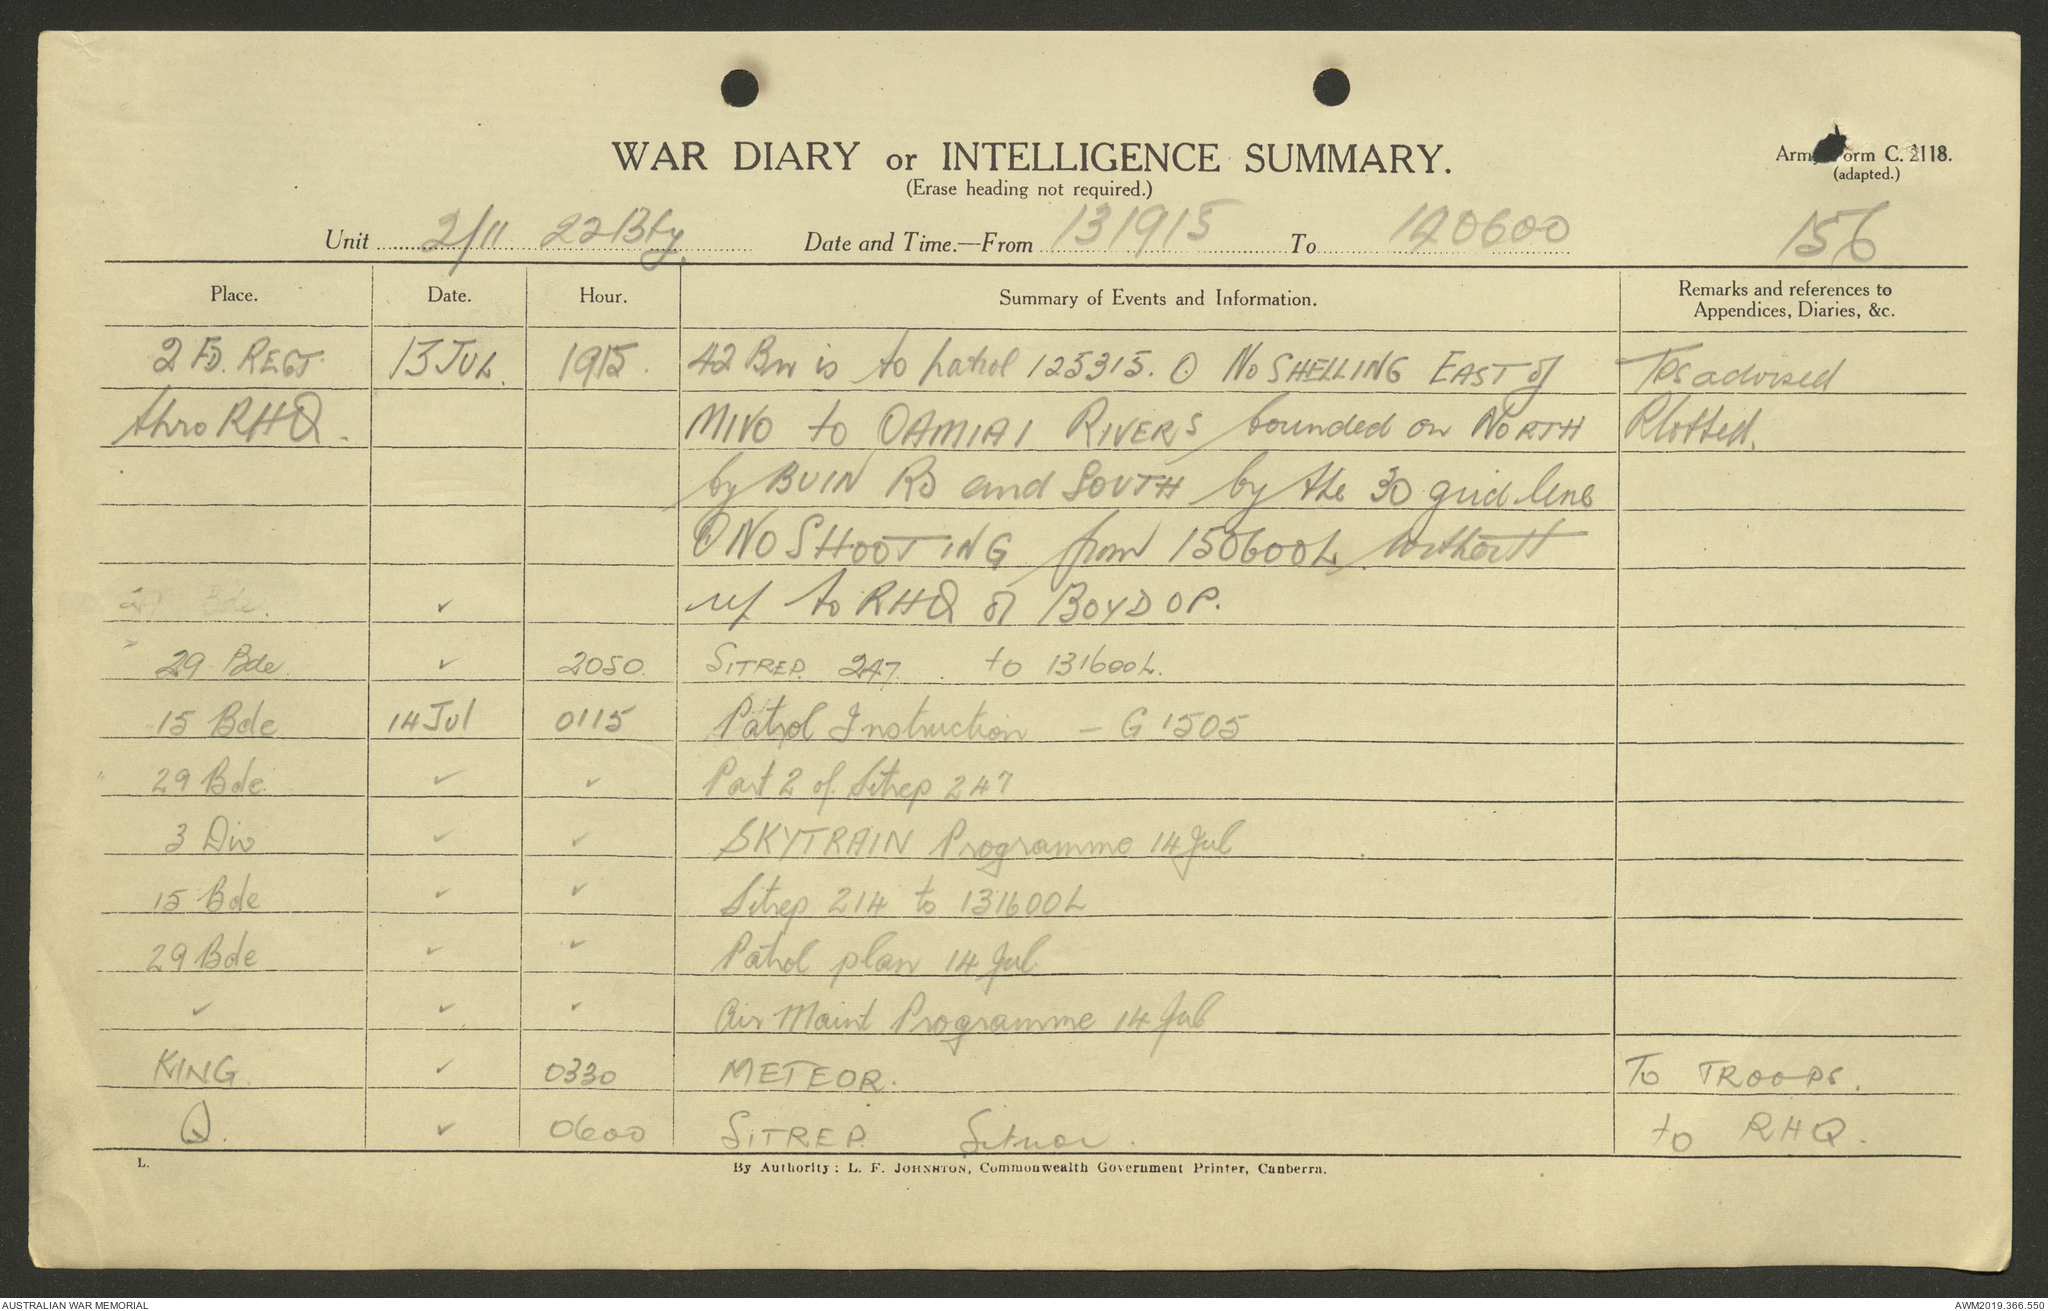 WAR DIARY or INTELLIGENCE SUMMARY.
(Erase heading not required.)
Army Form C. 2118.
(adapted.)
Unit 2/11 22 Bty. Date and Time.—From 131915 To 140600 156
Place. Date. Hour. Summary of Events and Information. Remarks and references to Appendices, Diaries, &c.
2 FD. REGT. 13 JUL. 1915. 42 Bn is to patrol 125315. NO SHELLING EAST of Tps advised
thro RHQ. MIVO to OAMIAI RIVERS bounded on NORTH Plotted.
by BUIN RD and SOUTH by the 30 grid line
NO SHOOTING from 150600L without
ref to RHQ or BOYD OP.
29 Bde. ✓ 2050. SITREP. 247. to 131600L.
15 Bde 14 Jul 0115 Patrol Instruction – G 1505
29 Bde. ✓ ✓ Part 2 of Sitrep 247
3 Div ✓ ✓ SKYTRAIN Programme 14 Jul
15 Bde ✓ ✓ Sitrep 214 to 131600L
29 Bde ✓ ✓ Patrol plan 14 Jul
✓ ✓ ✓ Air Maint Programme 14 Jul
KING. ✓ 0330 METEOR. To TROOPS.
Q. ✓ 0600 SITREP. to RHQ.
L.
By Authority: L. F. JOHNSTON, Commonwealth Government Printer, Canberra.
AUSTRALIAN WAR MEMORIAL
AWM2019.366.550